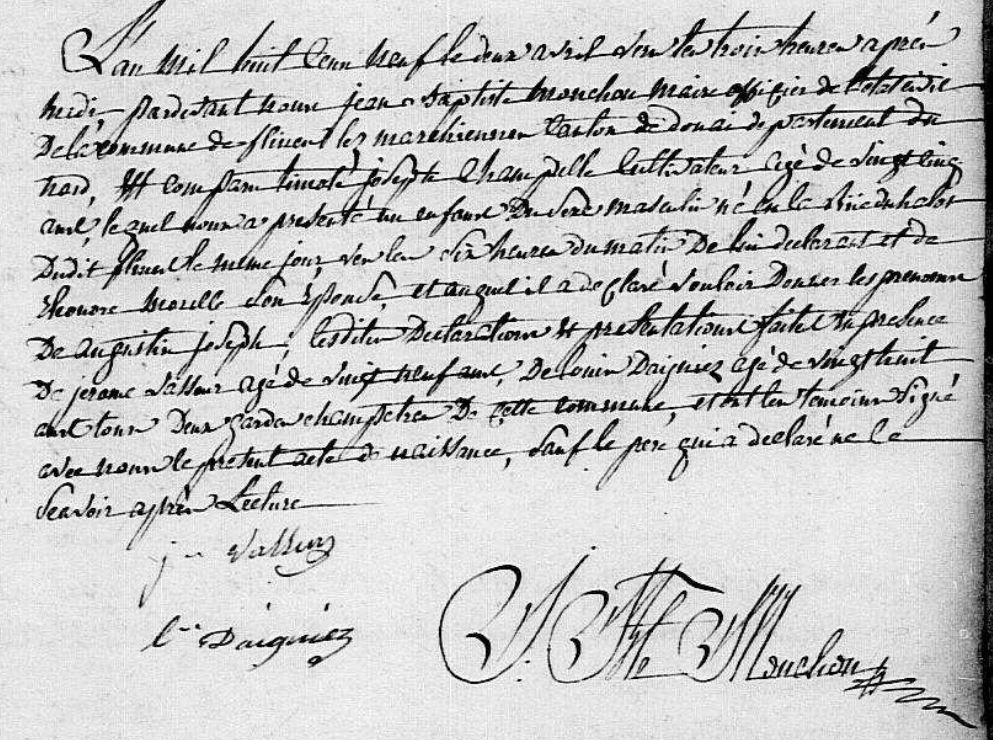 L'an mil huit Cent neuf le deux avril vers les trois heures après
midi, pardevant nous jean Baptiste Monchou maire officier de l'etat civil
De la commune de flines les marchiennes Canton de douai departement du
nord, est comparu timoté joseph Cultivateur agé de vingt cinq
ans, lequel nous a presenté un enfant Du sexe masculin né en la Rüe du
Dudit flines le meme jour, vers les six heures du matin De lui declarant et de
honore morelle son Epouse, et auquel il a declaré vouloir Donner les prenoms
De augustin joseph, lesdites Declarations et presentations faites en presence
De jerome Vasseur agé de vingt neuf ans, De louis Daigniez agé de vingt huit
ans tous Deux gardes champetres De cette commune, et ont les temoins signé
avec nous le present acte de naissance, sauf le pere qui a declaré ne le
scavoir après Lecture
j Vasseur
ls Daigniez
J. Bte Monchou